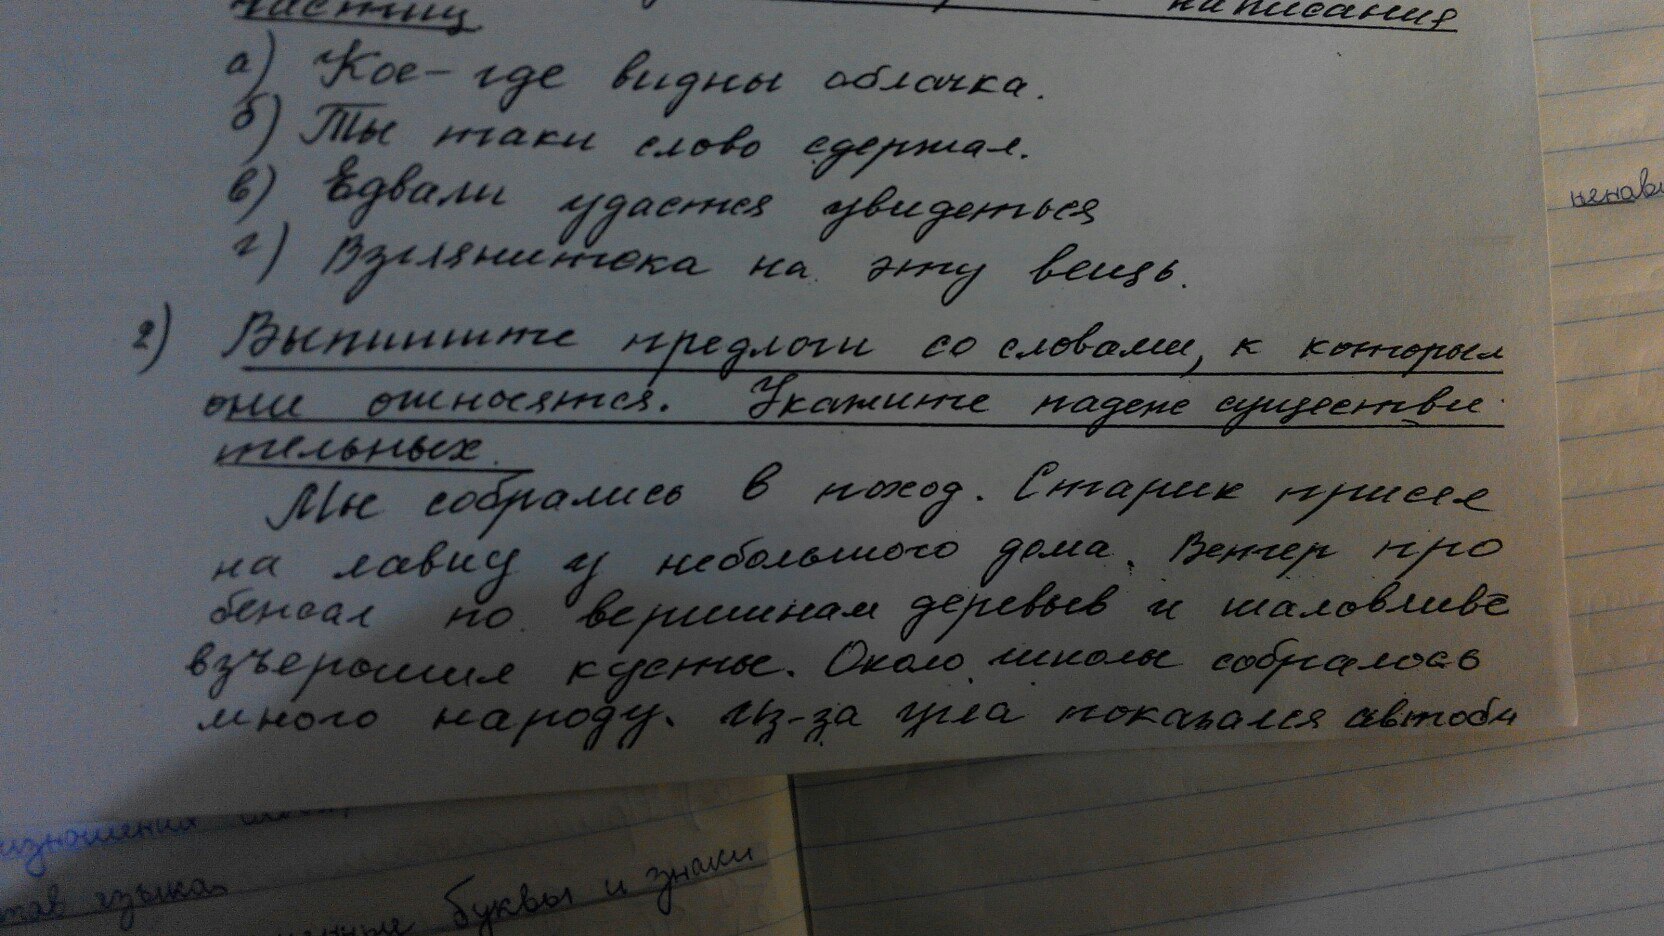 частиц написания
а) Кое-где видны облачка.
б) Ты таки слово сдержал.
в) Едвали удастся увидеться
г) Взглянитека на эту вещь.
2) Выпишите предлоги со словами, к которым
они относятся. Укажите падеж существи
тельных.
Мы собрались в поход. Старик присел
на лавку у небольшого дома. Ветер про
бежал по вершинам деревьев и шаловливо
взъерошил кусты. Около школы собралось
много народу. Из-за угла показался автобу
ненави
языка
буквы и знаки